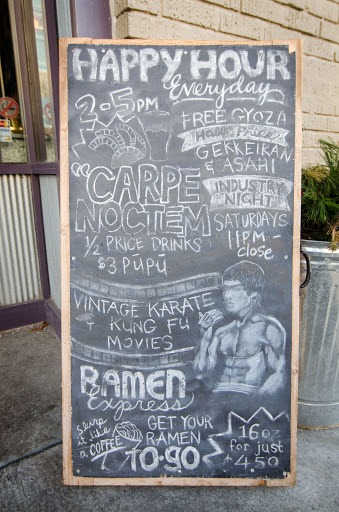 HAPPY HOUR
Everyday
2-5PM
FREE GYOZA
Half Price
GEKKEIKAN
& ASAHI
INDUSTRY
NIGHT
SATURDAYS
11PM -
close
"CARPE
NOCTEM
1/2 PRICE DRINKS
$3 PŪPŪ
VINTAGE KARATE
+ KUNG FU
MOVIES
RAMEN
Express
Slurp
it like
a COFFEE
GET YOUR
RAMEN
TO-GO
16oz
for just
$4.50